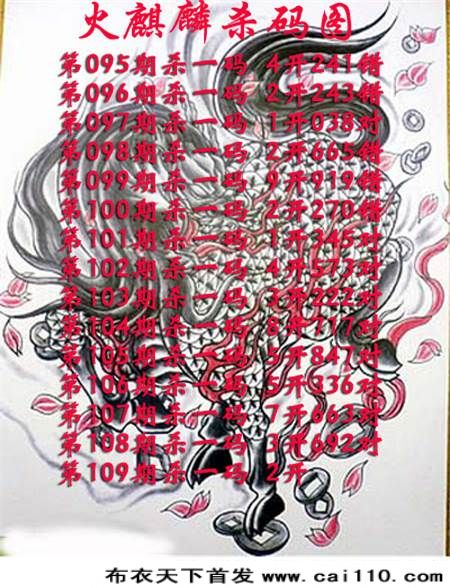 火麒麟杀码图
第095期杀一码 4开241错
第096期杀一码 2开243错
第097期杀一码 1开038对
第098期杀一码 2开665错
第099期杀一码 9开919错
第100期杀一码 2开270错
第101期杀一码 1开345对
第102期杀一码 4开573对
第103期杀一码 3开222对
第104期杀一码 8开717对
第105期杀一码 5开847对
第106期杀一码 5开336对
第107期杀一码 7开663对
第108期杀一码 3开692对
第109期杀一码 2开
布衣天下首发 www.cai110.com